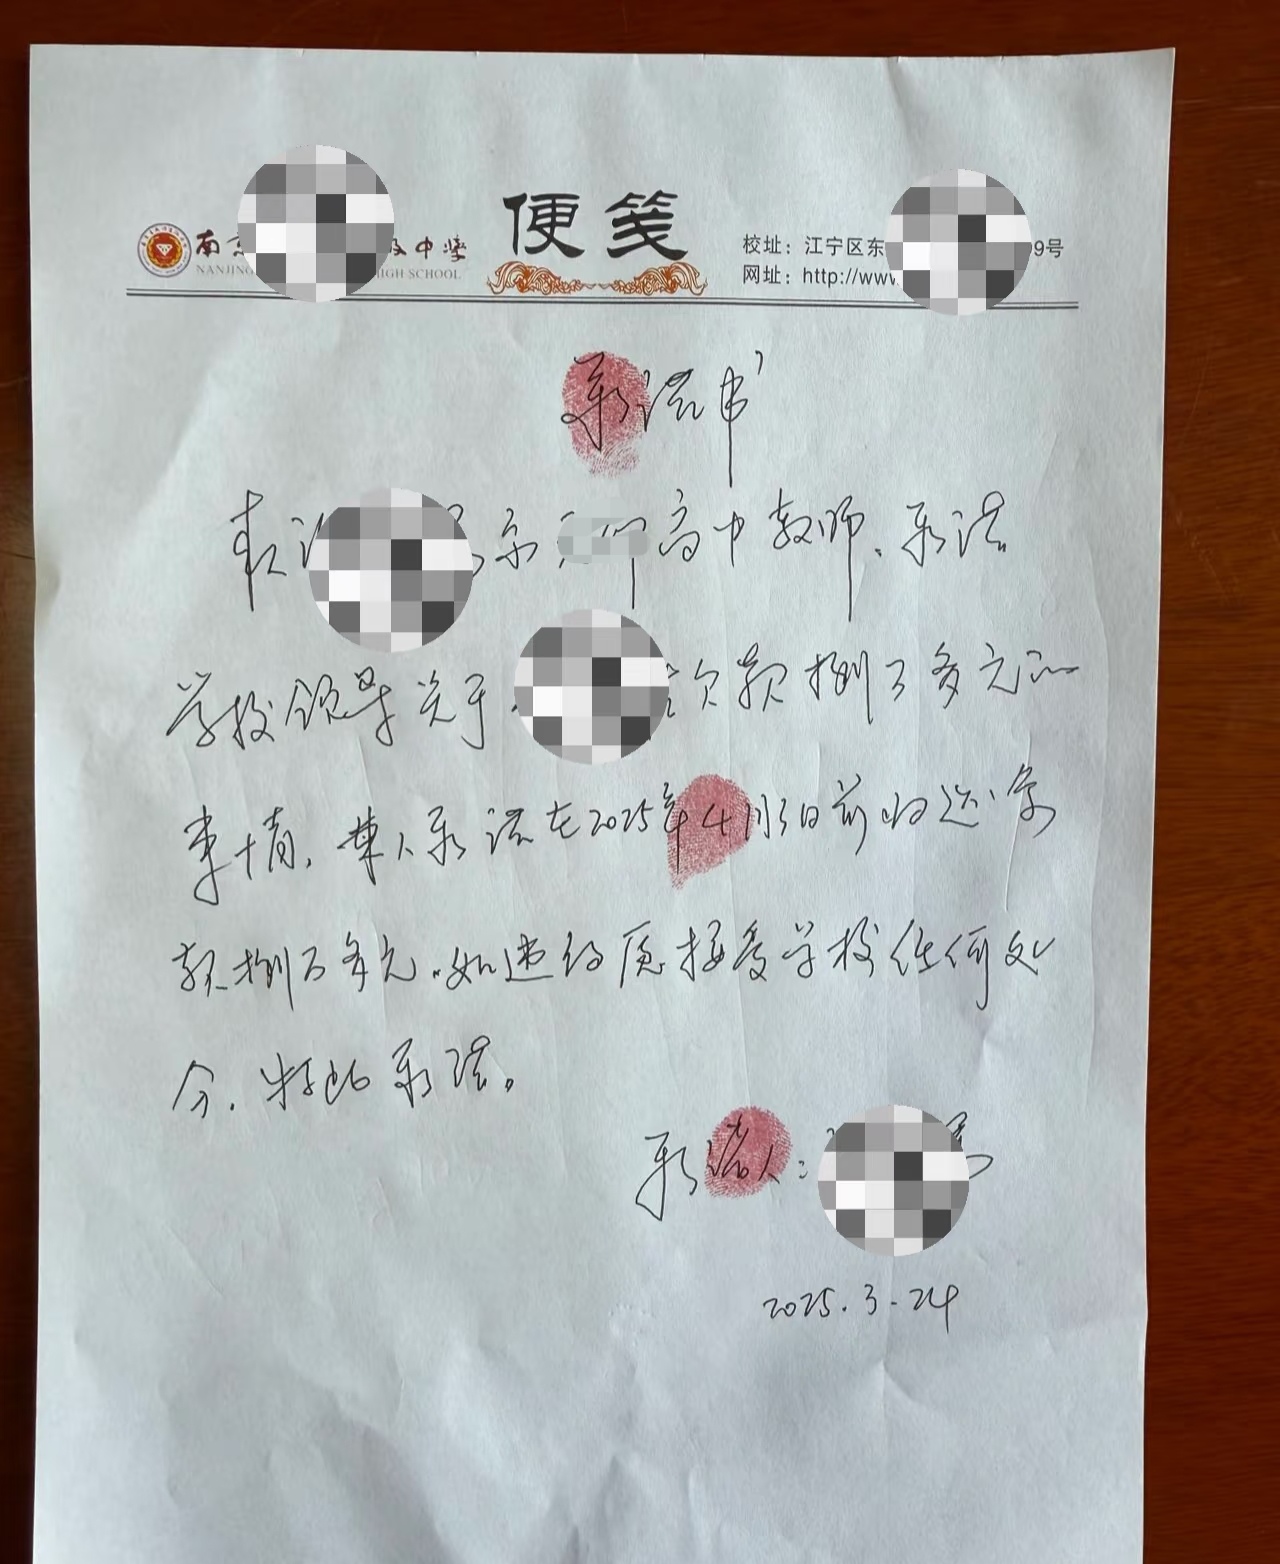 南京 级中学
NANJING HIGH SCHOOL
便笺
校址：江宁区东 9号
网址：http://www.
承诺书
我 南京 高中教师、承诺
学校领导关于 欠款捌万多元的
事情，本人承诺在2025年4月3日前归还、余
款捌万多元。如违约愿接受学校任何处
分、特此承诺。
承诺人：
2025.3.24